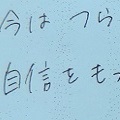 今は つら
自信をも